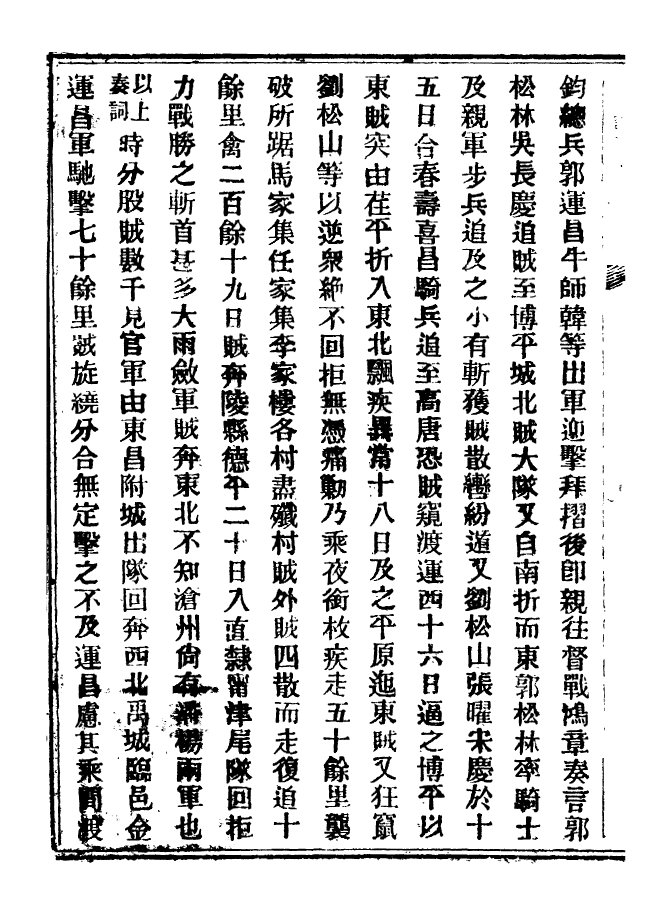 鈞總兵郭運昌牛師韓等出軍迎擊拜摺後卽親往督戰鴻章奏言郭
松林吳長慶追賊至博平城北賊大隊又自南折而東郭松林率騎士
及親軍步兵追及之小有斬獲賊散轡紛遁又劉松山張曜宋慶於十
五日合春壽喜昌騎兵追至高唐恐賊窺渡運西十六日逼之博平以
東賊突由茌平折入東北飄疾異常十八日及之平原迤東賊又狂竄
劉松山等以逆衆絶不回拒無憑痛勦乃乘夜銜枚疾走五十餘里襲
破所踞馬家集任家集李家樓各村盡殲村賊外賊四散而走復追十
餘里禽二百餘十九日賊奔陵縣德平二十日入直隸甯津尾隊回拒
力戰勝之斬首甚多大雨斂軍賊奔東北不知滄州尙有潘楊兩軍也
以上奏詞時分股賊數千見官軍由東昌附城出隊回奔西北禹城臨邑金
運昌軍馳擊七十餘里賊旋繞分合無定擊之不及運昌慮其乘間渡